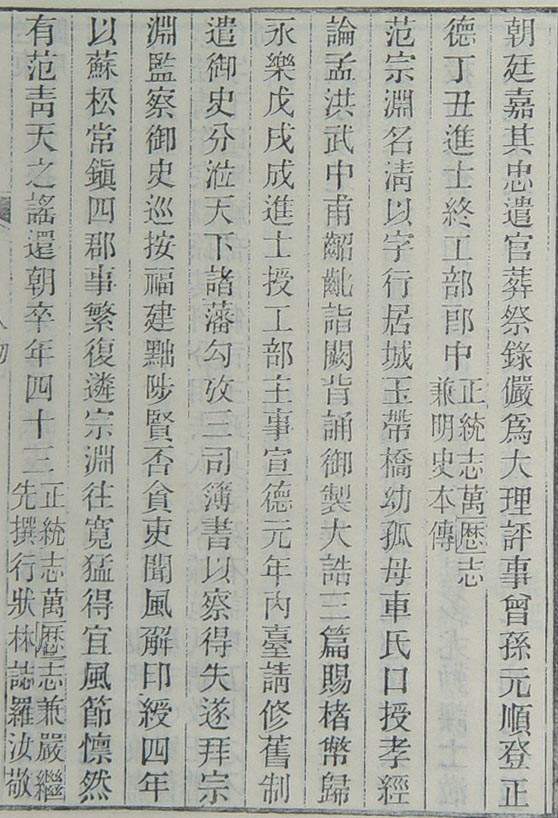 朝廷嘉其忠遣官葬祭錄儼爲大理評事曾孫元順登正
德丁丑進士終工部郎中正統志萬歷志兼明史本傳
范宗淵名淸以字行居城玉帶橋幼孤母車氏口授孝經
論孟洪武中甫齠齔詣闕背誦御製大誥三篇賜楮幣歸
永樂戊戌成進士授工部主事宣德元年內臺請修舊制
遣御史分涖天下諸藩勾攷三司簿書以察得失遂拜宗
淵監察御史巡按福建黜陟賢否貪吏聞風解印綬四年
以蘇松常鎭四郡事繁復遴宗淵往寬猛得宜風節懍然
有范靑天之謠還朝卒年四十三正統志萬歷志兼嚴繼先撰行狀林誌羅汝敬